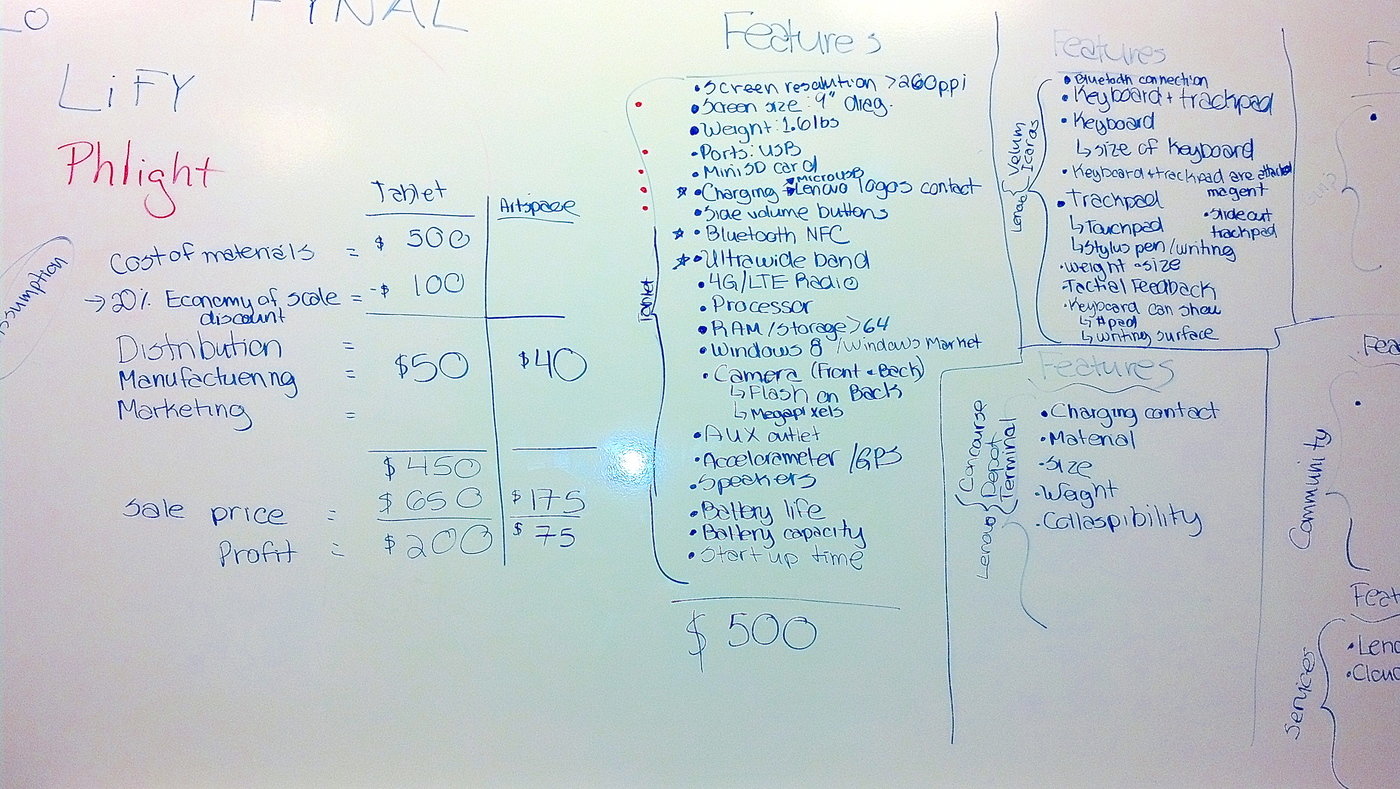 LO
FYNAL
LiFY
Phlight
Tablet
Artspace
Cost of materials = $ 500
→ 20% Economy of scale = -$ 100
discount
Distribution =
Manufactuering = $50 $40
Marketing =
$450
Sale price = $650 $175
Profit = $200 $75
Features
Tablet
• Screen resolution >260ppi
• Screen size: 9" diag.
• Weight: 1.6lbs
• Ports: USB
• Mini SD card
Microusb
☆ • Charging → Lenovo logos contact
• Side volume buttons
☆ • Bluetooth NFC
☆ • Ultrawide band
• 4G/LTE Radio
• Processor
• RAM/Storage >64
• Windows 8 /Windows Market
• Camera (Front + Back)
↳ Flash on Back
↳ Megapixels
• AUX outlet
• Accelorameter /GPS
• Speakers
• Battery life
• Battery capacity
• Start up time
$ 500
Features
Lenovo
Volum
Icaras
• Bluetooth connection
• Keyboard + trackpad
• Keyboard
↳ size of keyboard
• Keyboard + trackpad are attached
magent
• Trackpad
• Slide out
trackpad
↳ Touchpad
↳ Stylus pen/writing
• Weight + size
• Tactial Feedback
• Keyboard can show
↳ # pad
↳ writing surface
Features
Lenovo
Concourse
Depot
Terminal
• Charging contact
• Material
• Size
• Weight
• Collaspibility
Fea
Community
Feat
Services
• Leno
• Cloud